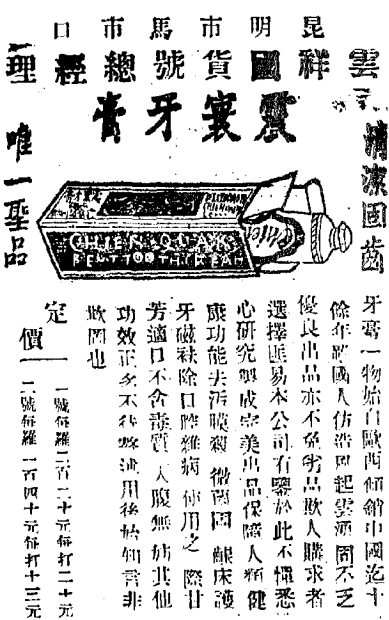 昆明市馬市口
雲祥國貨號總經理
震寰牙膏
清潔固齒
唯一聖品
BEST TOOTHCREAM
牙膏一物始自歐西傾銷中國迄十
餘年際國人仿造風起雲湧固不乏
優良出品亦不免劣品欺人購求者
選擇匪易本公司有鑒於此不憚悉
心研究製成完美出品保障人類健
康功能去污膜殺微菌固齦床護
牙磁袪除口腔雜病使用之際甘
芳適口不含毒質入腹無妨其他
功效正多不待繁述用後始知言非
欺罔也
定價
一號每羅二百二十元每打二十元
二號每羅一百四十元每打十三元